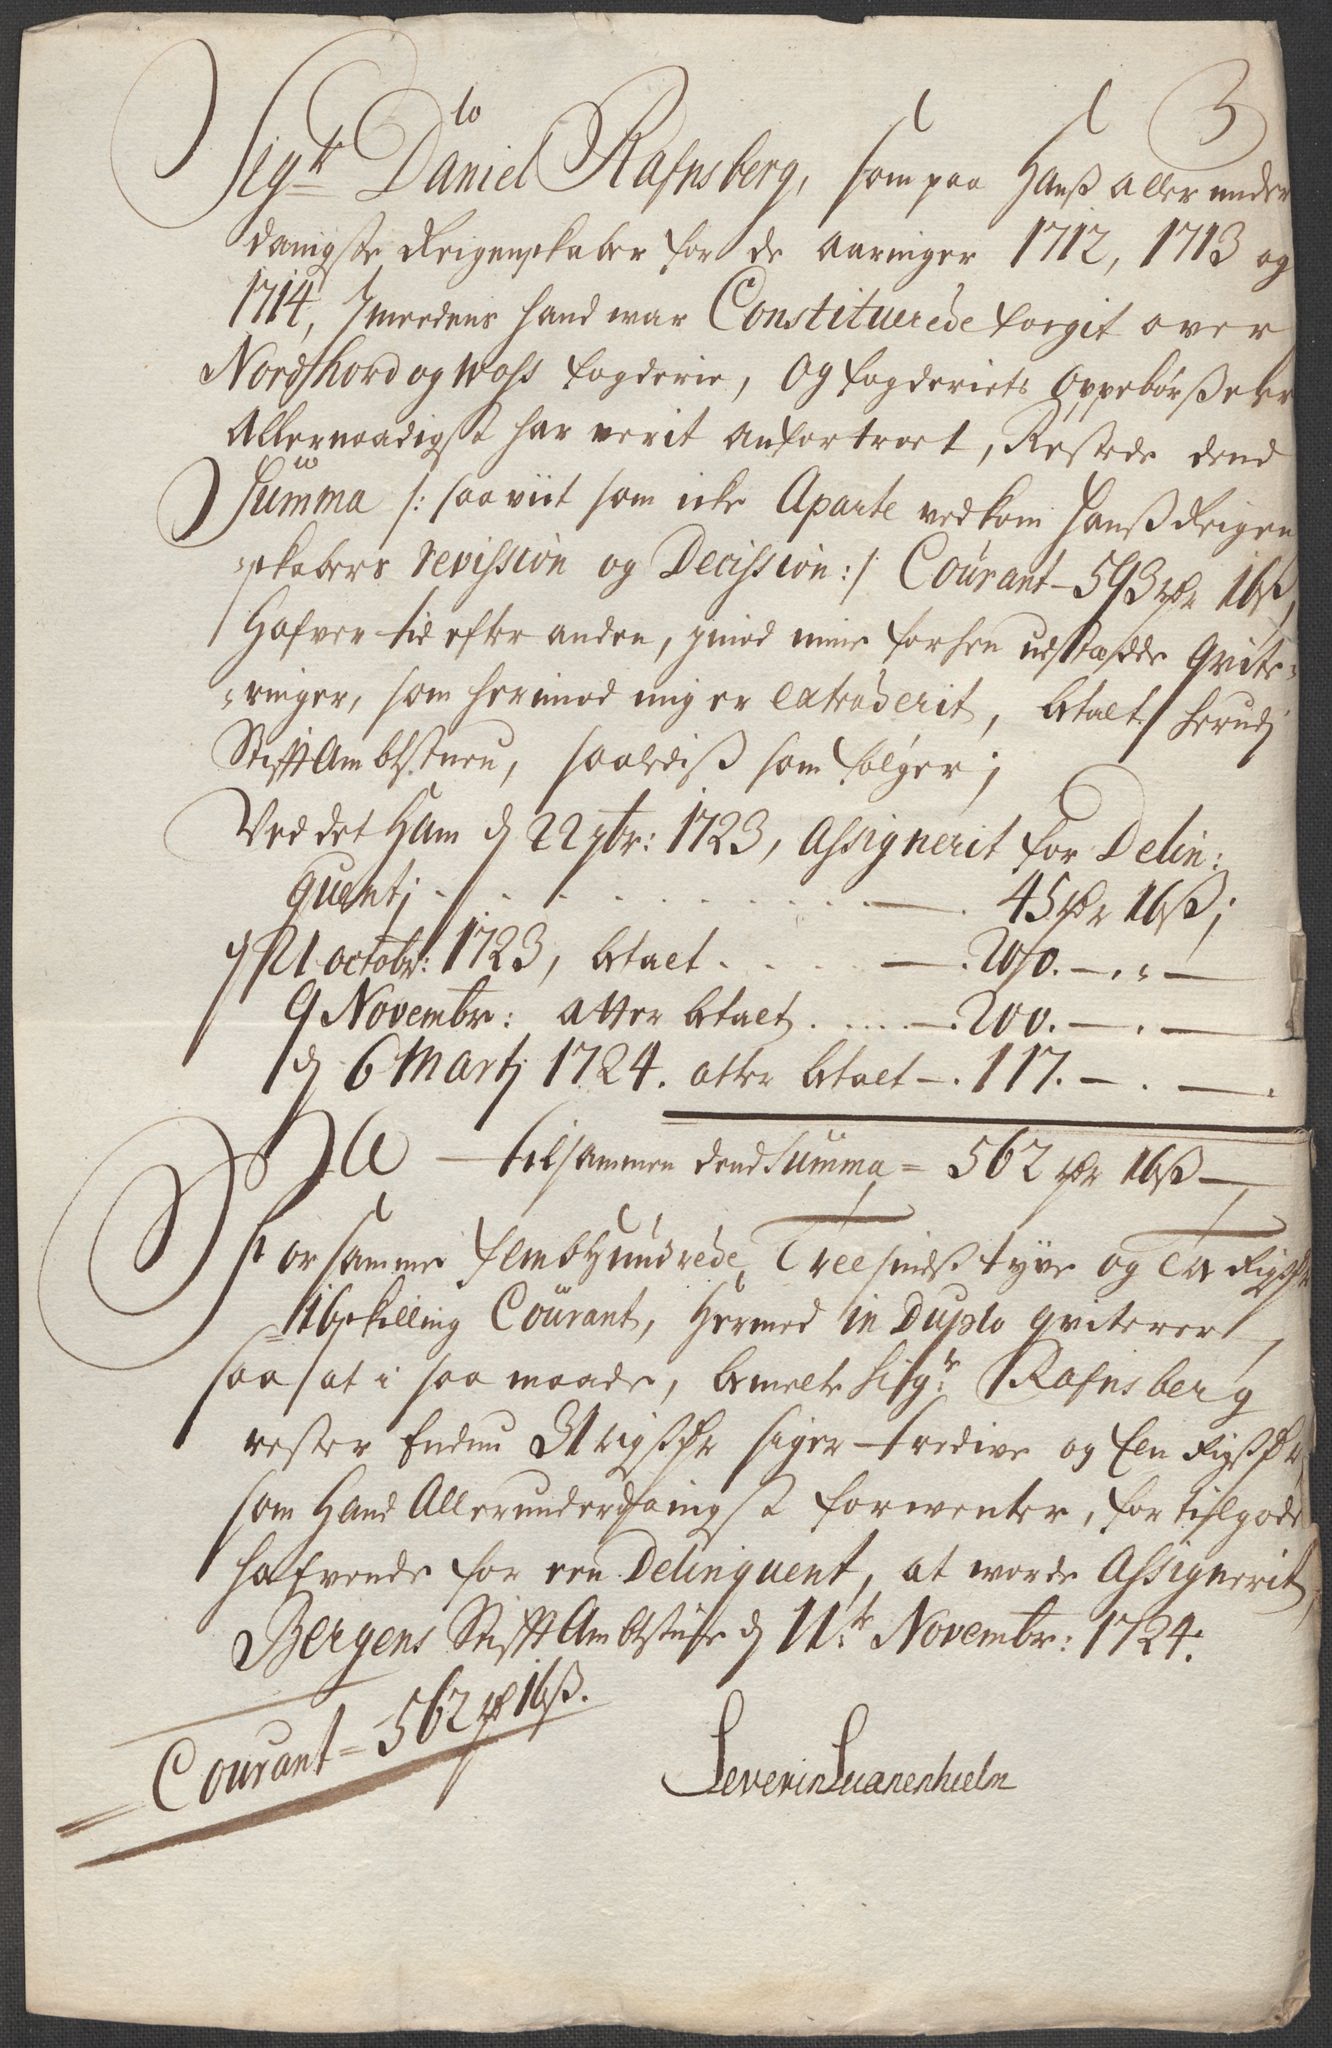 3
Sigr Daniel Rafnsberg, som paa Hanß aller under
danigste Reigenskaber for de aaringer 1712, 1713 og
1714, Jmedens hand war Constituerede fogit over
Nordhord og Woss fogderie, og fogderiets oppebørßeler
Allernaadigst har verit anfortroet, Restede dend
Summa /: saaviit som icke Aparte vedkom hanß Reigen
-skabers revission og Decission :/ Courant - 593 rdr 16 ß,
Hafver tid efter anden, imod mine forhen udstædde qvite-
-ringer, som herimod mig er extraderit, betalt herudj
StifftAmbtstuen, saaledis som følger;
Ved det Ham d 22 7br: 1723, Assignerit for Delin:
quentj . . . . . . . 45 rdr 16 ß;
d 21 octobr: 1723, betalt . . . . - . 200. - . " -
9 Novembr: atter betalt . . . . - . 200. - . -
d 6 Martj 1724. atter betalt - . 117. - . -
Er - tilsammen dend Summa = 562 rdr 16 ß -
For samme fembHundrede, Treesindstyve og To Rigsdr
16 skilling Courant, hermed in Duplo qviterer,
saa at i saa maade, bemelte Sigr Rafnsberg
rester Endnu 31 rigsdr siger tredive og Een Rigsdr
som Hand Allerunderdanigst forwenter, for tilgode
hafvende for een Delinquent, at worde Assignerit,
Bergens StifftAmbtstue d 11te Novembr: 1724.
Courant = 562 rdr 16 ß.
Severin Suanenhielm